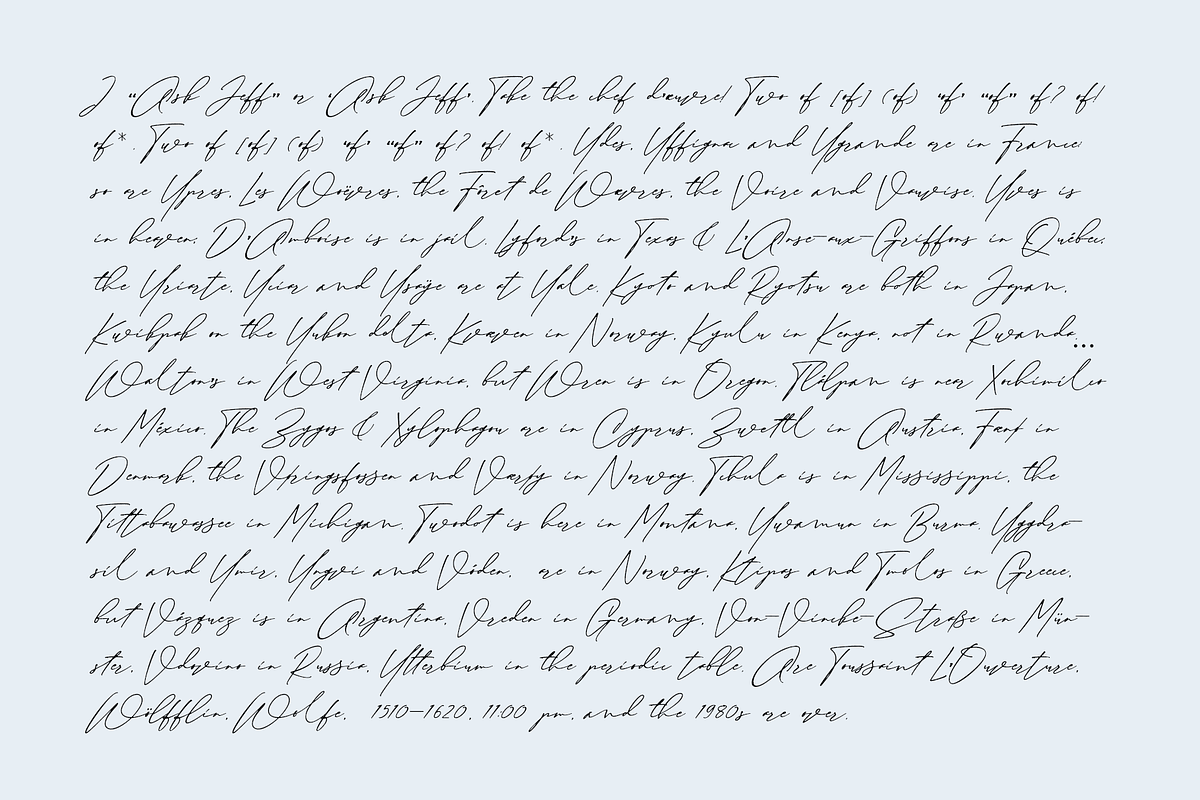 I “Ask Jeff” or ‘Ask Jeff’. Take the chef d’œuvre! Two of [of] (of) ‘of’ “of” of? of!
of*. Two of [of] (of) ‘of’ “of” of? of! of*. Ydes, Yffignia and Ygrande are in France:
so are Ypres, Les Woëvres, the Fôret de Wœvres, the Voire and Vauvise. Yves is
in heaven; D’Amboise is in jail. Lyford’s in Texas & L’Anse-aux-Griffons in Québec;
the Yriarte, Yciar and Ysaÿe are at Yale. Kyoto and Ryotsu are both in Japan,
Kwikpak on the Yukon delta, Kvæven in Norway, Kyulu in Kenya, not in Rwanda.…
Walton’s in West Virginia, but Wren is in Oregon. Tlálpan is near Xochimilco
in México. The Zygos & Xylophagou are in Cyprus, Zwettl in Austria, Fænø in
Denmark, the Vøringsfossen and Værøy in Norway. Tchula is in Mississippi, the
Tittabawassee in Michigan. Twodot is here in Montana, Ywamun in Burma. Yggdra-
sil and Ymir, Yngvi and Vóden, are in Norway, Ktipas and Tmolos in Greece,
but Vázquez is in Argentina, Vreden in Germany, Von-Vincke-Straße in Mün-
ster, Vdovino in Russia, Ytterbium in the periodic table. Are Toussaint L’Ouverture,
Wölfflin, Wolfe, 1510–1620, 11:00 pm, and the 1980s are over.